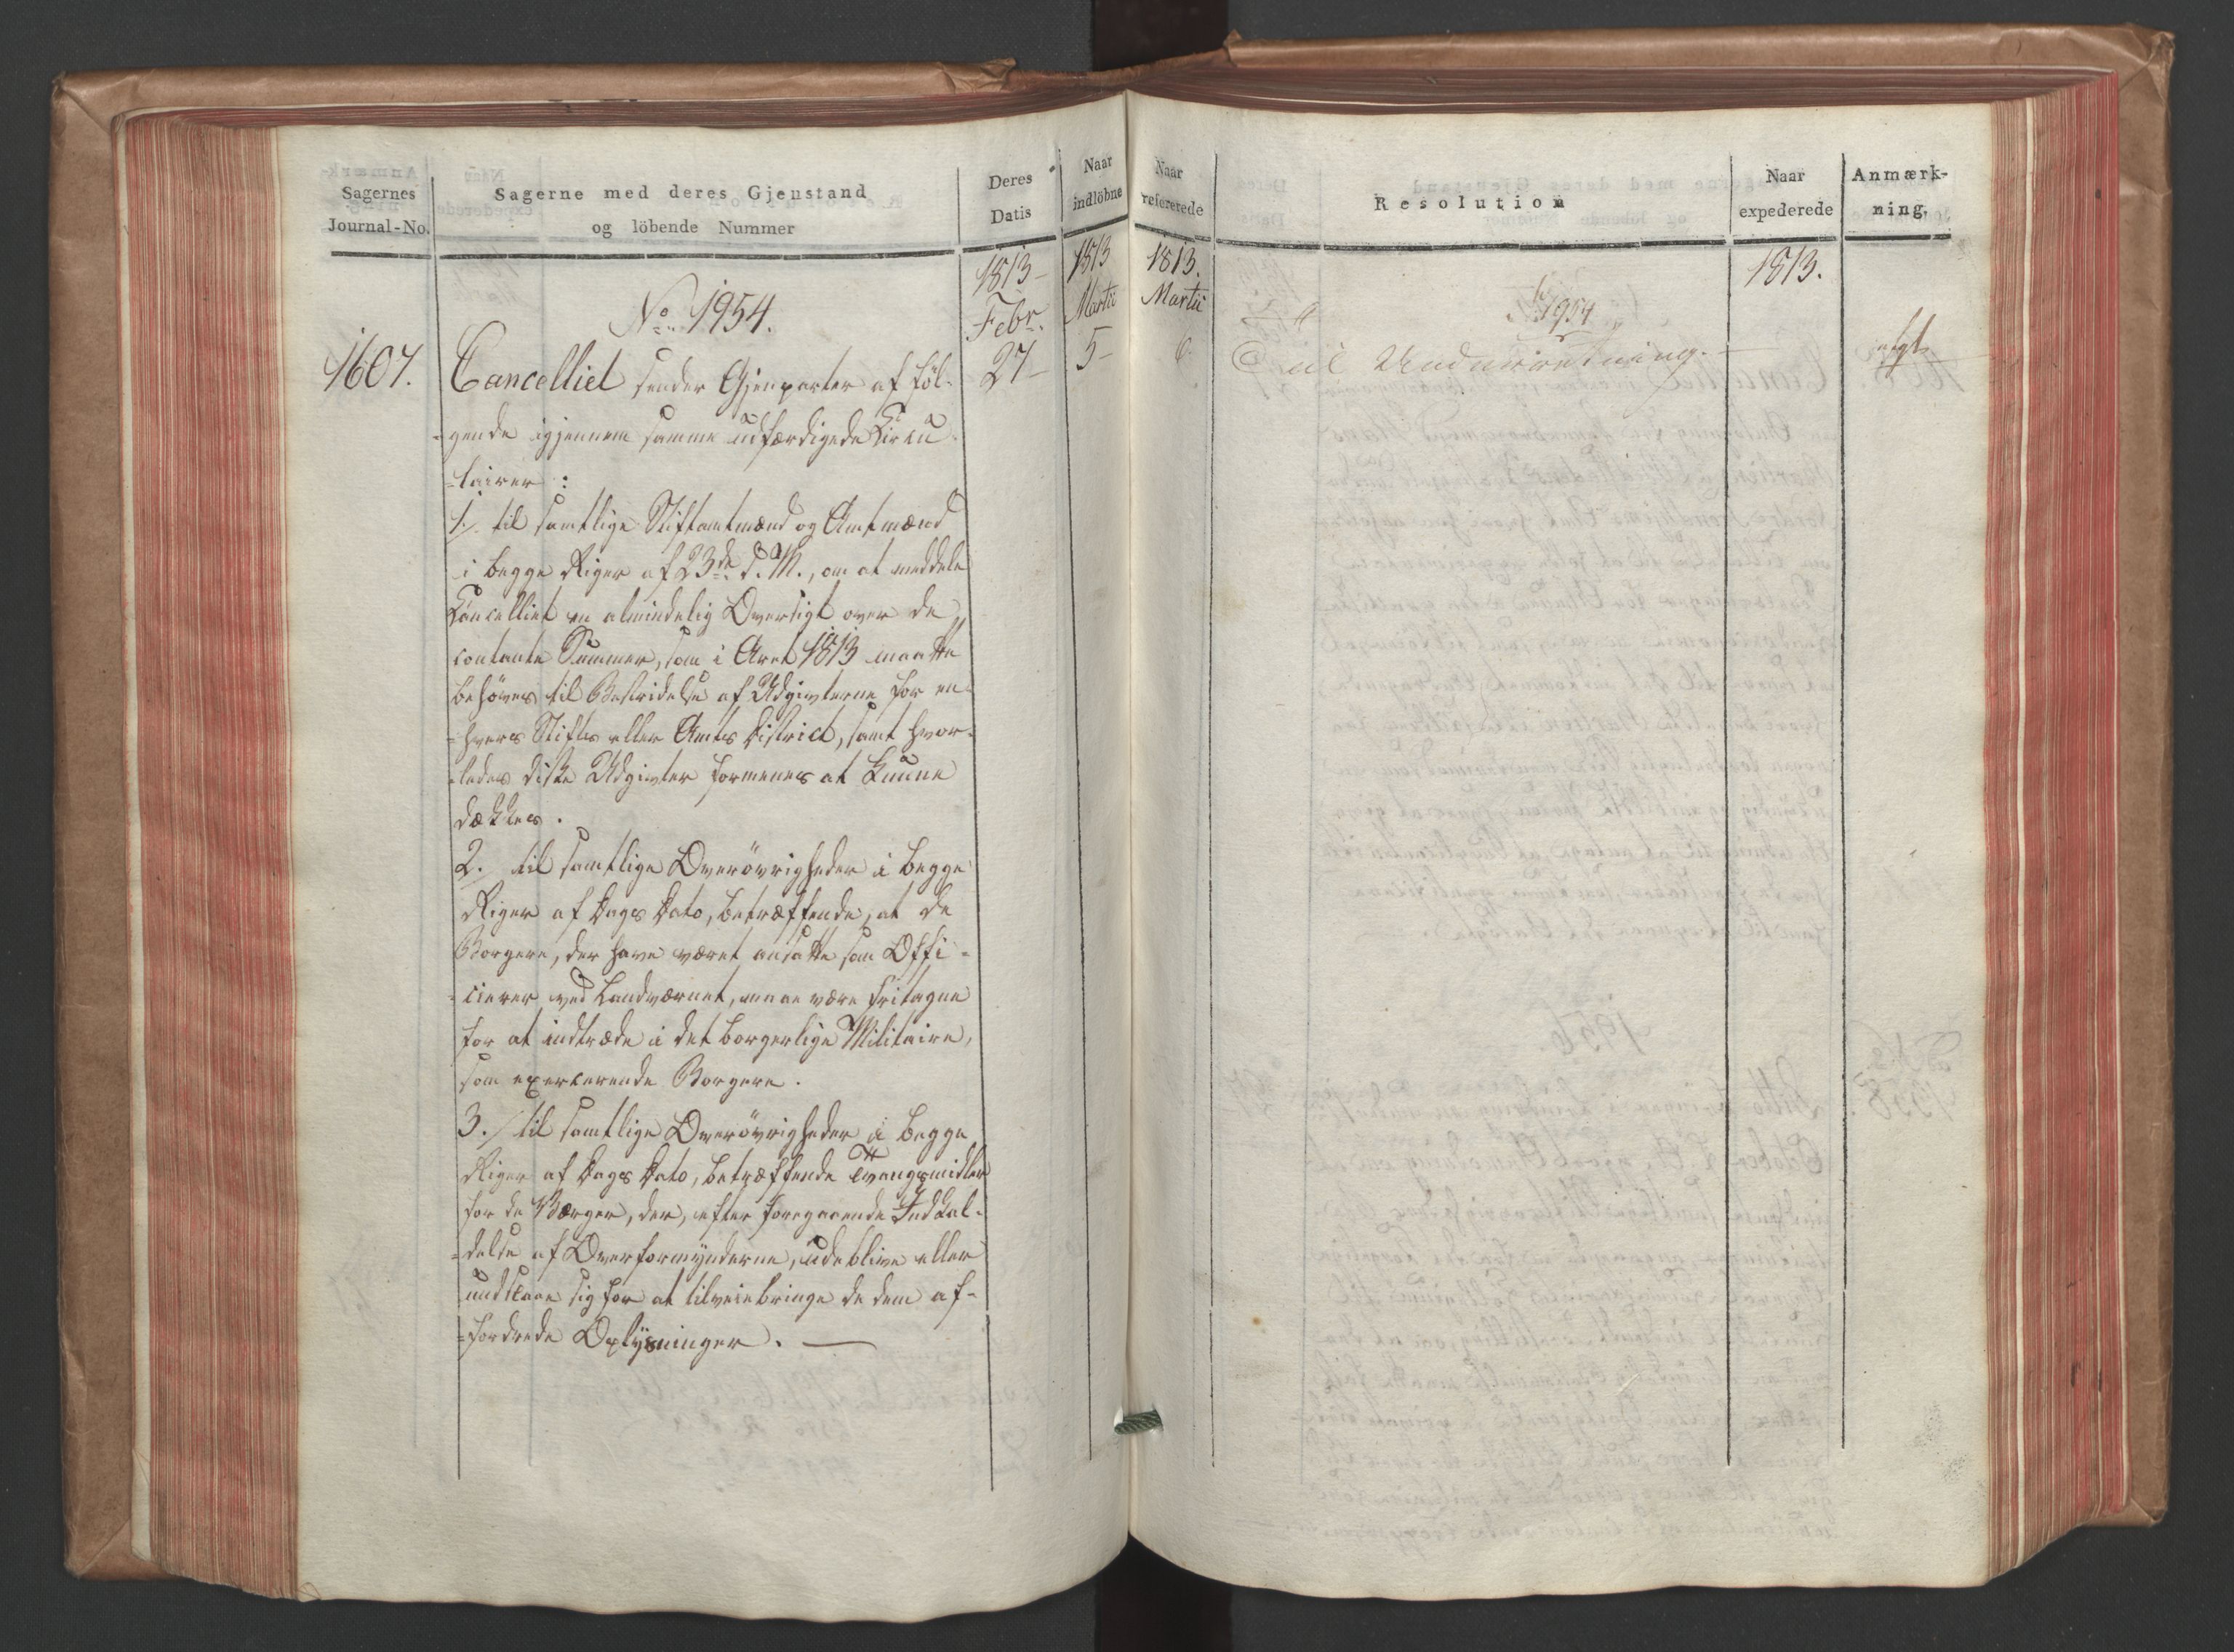 Sagernes
Journal-No.
Sagerne med deres Gjenstand
og löbende Nummer
Deres
Datis
Naar
indlöbne
1813
Febr.
1813
Martii
No. 1954.
1607.
Cancelliet sender Gjenparter af föl-
27
5
-gende igjennem samme udfærdigede Circu-
-lairer:
1. til samtlige Stiftamtmænd og Amtmænd
i begge Riger af 23de d. M., om at meddele
Cancelliet en almindelig Oversigt over de
contante Summer, som i Aret 1813 maatte
behöves til Bestridelse af Udgivterne for en-
-hvers Stifts eller Amts District, samt hvor-
-ledes diske Udgivter formenes at kunne
dækkes.
2. til samtlige Overövrigheder i begge
Riger af Dags Dato, betræffende, at de
Borgere, der have været ansatte som Offi-
-cierer ved Landværnet, maae være fritagne
for at indtræde i det borgerlige Militaire,
som exercerende Borgere.
3. til samtlige Overövrigheder i begge
Riger af Dags Dato, betræffende Tvangsmidler
for de Værger, der, efter foregaaende Indkal-
-delse af Overformynderne, udeblive eller
undslaae sig for at tilveiebringe de dem af-
-fordrede Oplysninger. —
Naar
refererede
Resolution
Naar
expederede
Anmærk-
ning.
1813.
Martii
1813.
1954
6
til Underretning.